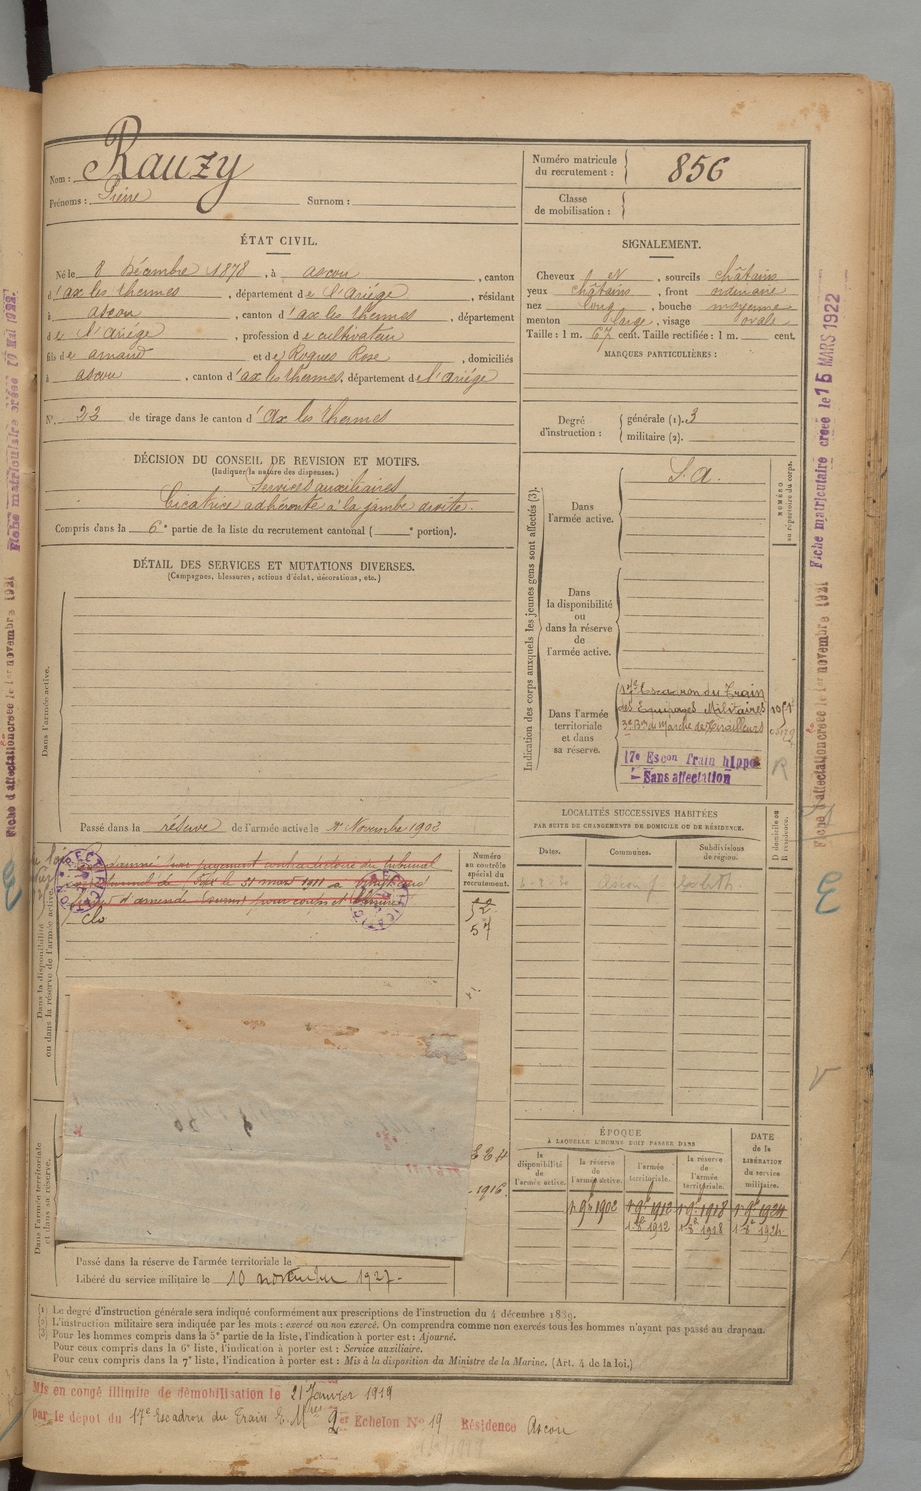 Nom : Rauzy
Prénoms : Pierre Surnom :
Numéro matricule du recrutement : 856
Classe de mobilisation :
ÉTAT CIVIL.
Né le 8 Décembre 1878, à ascou, canton
d'ax les thermes, département de l'Ariége, résidant
à ascou, canton d'ax les thermes, département
de l'Ariége, profession de cultivateur
fils de arnaud et de Rogues Rose, domiciliés
à ascou, canton d'ax les thermes, département de l'ariége
N° 23 de tirage dans le canton d'Ax les thermes
SIGNALEMENT.
Cheveux , sourcils châtains
yeux châtains, front ordinaire
nez long, bouche moyenne
menton large, visage ovale
Taille : 1 m. 67 cent. Taille rectifiée : 1 m. cent.
MARQUES PARTICULIÈRES :
Degré d'instruction :
générale (1). 3
militaire (2).
DÉCISION DU CONSEIL DE REVISION ET MOTIFS.
(Indiquer la nature des dispenses.)
Services auxiliaires
Cicatrice adhérente à la jambe droite.
Compris dans la 6e partie de la liste du recrutement cantonal ( e portion).
DÉTAIL DES SERVICES ET MUTATIONS DIVERSES.
(Campagnes, blessures, actions d'éclat, décorations, etc.)
Dans l'armée active.
Passé dans la réserve de l'armée active le 1er Novembre 1902
Indication des corps auxquels les jeunes gens sont affectés (3).
NUMÉRO au répertoire du corps.
Dans l'armée active.
S. A.
Dans la disponibilité ou dans la réserve de l'armée active.
Dans l'armée territoriale et dans sa réserve.
17e Escadron du Train
des Equipages Militaires
3e Bon de Marche de Tirailleurs
17e Escon Train hippo
Sans affectation
R
Dans la disponibilité ou dans la réserve de l'armée active.
RECTIFICATION
Numéro au contrôle spécial du recrutement.
LOCALITÉS SUCCESSIVES HABITÉES
PAR SUITE DE CHANGEMENTS DE DOMICILE OU DE RÉSIDENCE.
Dates. Communes. Subdivisions de région. D domicile ou R résidence.
Dans l'armée territoriale et dans sa réserve.
1916.
ÉPOQUE
À LAQUELLE L'HOMME DOIT PASSER DANS
la disponibilité de l'armée active. la réserve de l'armée active. l'armée territoriale. la réserve de l'armée territoriale.
DATE de la LIBÉRATION du service militaire.
1er 9bre 1902 1er 9bre 1912 1er 9bre 1918 1er 9bre 1924
1912 1918 1924
Passé dans la réserve de l'armée territoriale le
Libéré du service militaire le 10 novembre 1927.
(1) Le degré d'instruction générale sera indiqué conformément aux prescriptions de l'instruction du 4 décembre 1889.
(2) L'instruction militaire sera indiquée par les mots : exercé ou non exercé. On comprendra comme non exercés tous les hommes n'ayant pas passé au drapeau.
(3) Pour les hommes compris dans la 5e partie de la liste, l'indication à porter est : Ajourné.
Pour ceux compris dans la 6e liste, l'indication à porter est : Service auxiliaire.
Pour ceux compris dans la 7e liste, l'indication à porter est : Mis à la disposition du Ministre de la Marine. (Art. 4 de la loi.)
Mis en congé illimité de démobilisation le 21 Janvier 1919
par le dépôt du 17e Escadron du Train E. Mres Echelon No 19 Résidence Ascou
Fiche d'affectation creée le 1er novembre 1921 Fiche matriculaire creée le 15 MARS 1922
Fiche d'affectation creée le 1er novembre 1921 Fiche matriculaire creée